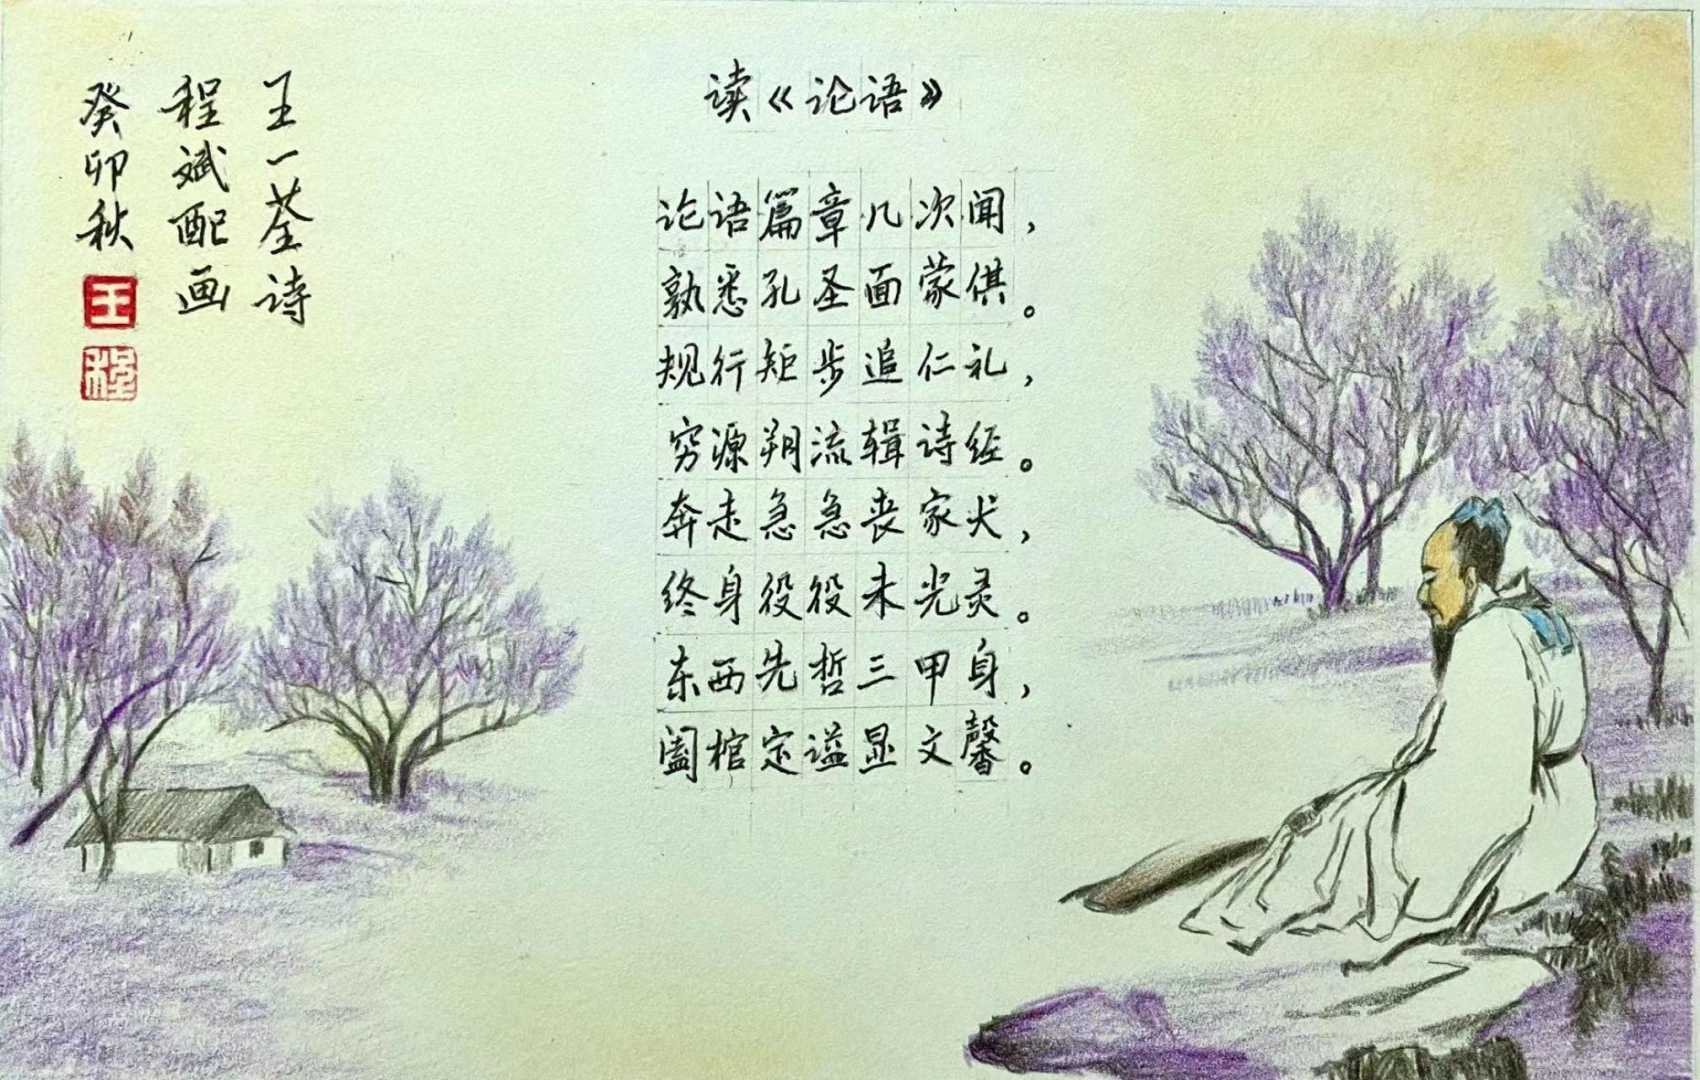 读《论语》
论语篇章几次闻，
孰悉孔圣面蒙倛。
规行矩步追仁礼，
穷源朔流辑诗经。
奔走急急丧家犬，
终身役役未光灵。
东西先哲三甲身，
盖棺定谥显文馨。
王一荃诗
程斌配画
癸卯秋
王
程